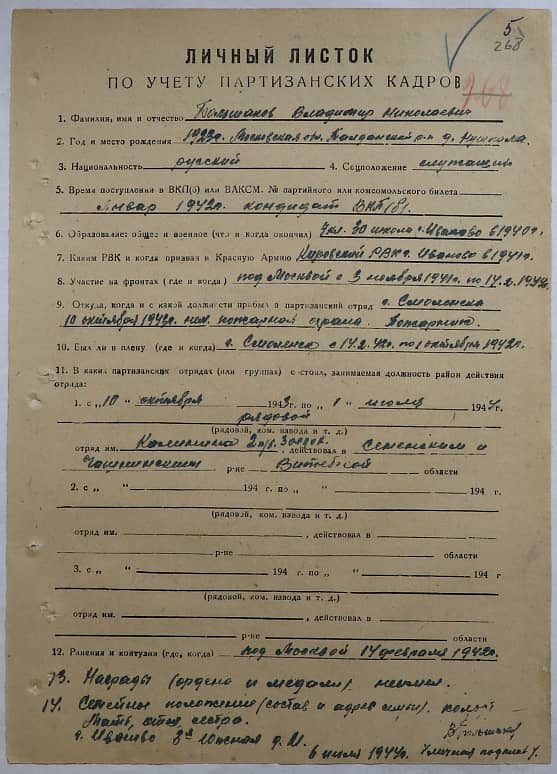 5
268
268
ЛИЧНЫЙ ЛИСТОК
ПО УЧЕТУ ПАРТИЗАНСКИХ КАДРОВ
1. Фамилия, имя и отчество Большаков Владимир Николаевич
2. Год и место рождения 1923г. Московская обл. Талдомский р-н д.
3. Национальность русский 4. Соцположение служащий
5. Время поступления в ВКП(б) или ВЛКСМ. № партийного или комсомольского билета
Январ 1942г. кондидат ВКП(б).
6. Образование: общее и военное (что и когда окончил) 7 кл. 30 школа г. Иваново в 1940г.
7. Каким РВК и когда призван в Красную Армию Кировский РВК г. Иваново в 1941г.
8. Участие на фронтах (где и когда) под Москвой с 3 ноября 1941г. по 14.2.1942г.
9. Откуда, когда и с какой должности прибыл в партизанский отряд г. Смоленска
10 октября 1943г. нем. пожарная охрана. Пожарник.
10. Был ли в плену (где и когда) г. Смоленск с 14.2.42г. по 1 октября 1942г.
11. В каких партизанских отрядах (или группах) состоял, занимаемая должность район действия
отряда:
1. с „10 " октября 1943г. по „ 1 " июля 1944г.
рядовой
(рядовой, ком. взвода и т. д.)
отряд им. Калинина , действовал в Сенненским и
Чашникским р-не Витебской области
2. с „ " 194 г. по „ " 194 г.
(рядовой, ком. взвода и т. д.)
отряд им. , действовал в
р-не области
3. с „ " 194 г. по „ " 194 г
(рядовой, ком. взвода и т. д.)
отряд им. , действовал в
р-не области
12. Ранения и контузии (где, когда) под Москвой 14 февраля 1942г.
13. Награды (ордена и медали) неимел.
14. Семейное положение (состав и адрес семьи). холост
Мать, отец, сестра.
г. Иваново 3я Южская д.
6 июля 1944г. личная подпись